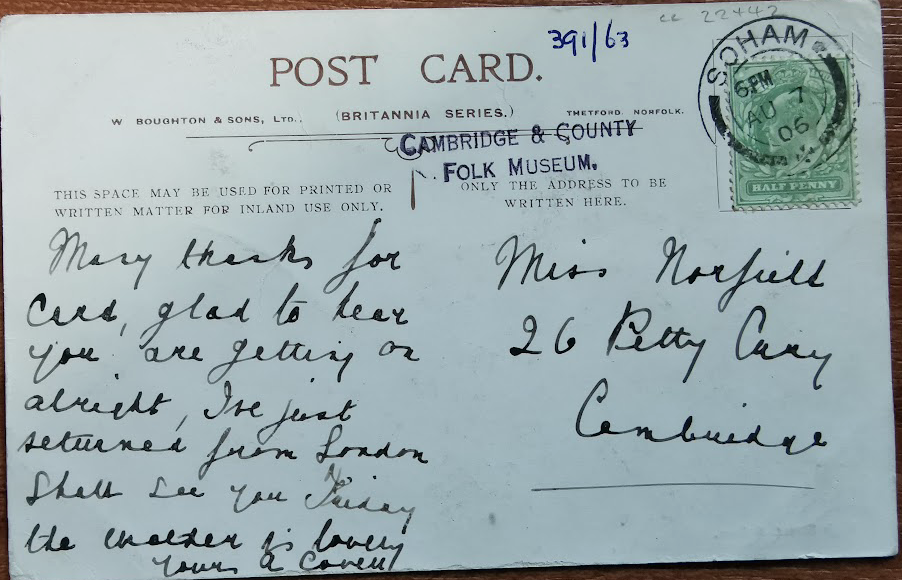 cc 22442
391/63
SOHAM
6 PM
AU 7
06
HALF PENNY
POST CARD.
W BOUGHTON & SONS, LTD., (BRITANNIA SERIES.) THETFORD, NORFOLK.
CAMBRIDGE & COUNTY
FOLK MUSEUM.
THIS SPACE MAY BE USED FOR PRINTED OR
WRITTEN MATTER FOR INLAND USE ONLY.
ONLY THE ADDRESS TO BE
WRITTEN HERE.
Many thanks for
Card, glad to hear
you are getting on
alright, I've just
returned from London
Shall see you Friday
the weather is lovely
yours A Covell
Miss Norfield
26 Petty Cury
Cambridge